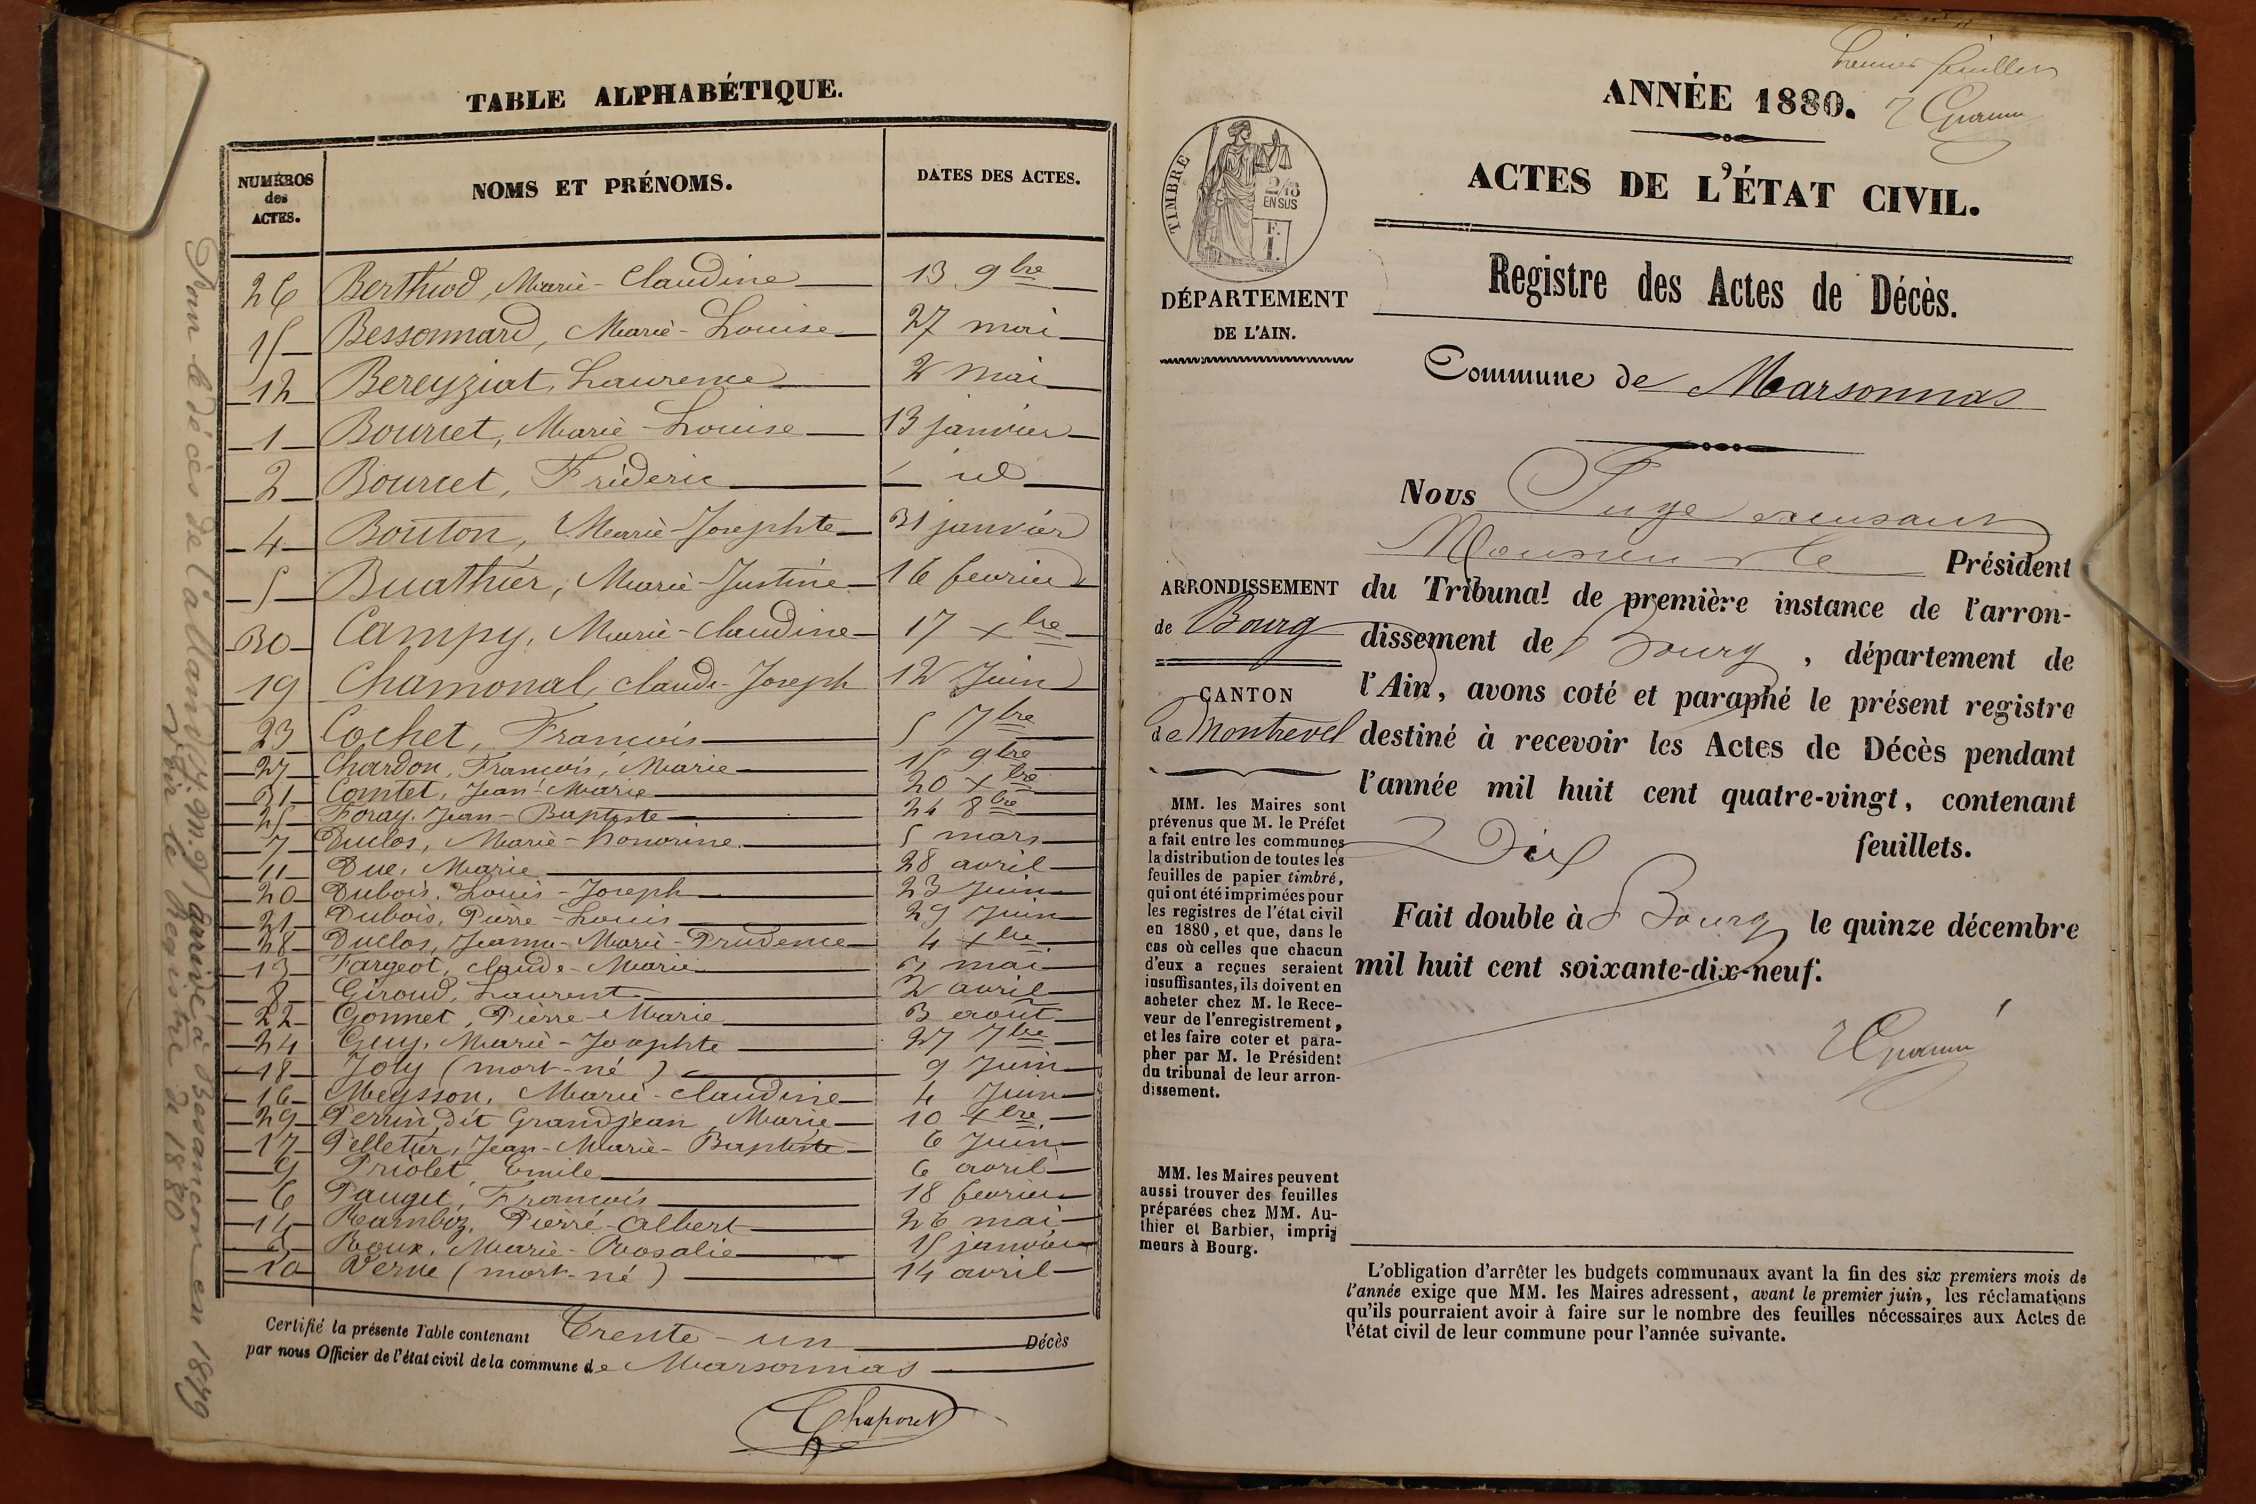 TABLE ALPHABÉTIQUE.
NUMÉROS des ACTES. NOMS ET PRÉNOMS. DATES DES ACTES.
26 Berthiod, Marie-Claudine 13 9bre
15 Bessonnard, Marie-Louise 27 mai
12 Bereyziat, Laurence 2 mai
1 Bourcet, Marie-Louise 13 janvier
2 Bourcet, Fréderic id
4 Bouton, Marie-Josephte 31 janvier
5 Buathier, Marie-Justine 16 fevrier
30 Campy, Marie-Claudine 17 xbre
19 Chamonal, Claude-Joseph 12 Juin
23 Cochet, François 5 7bre
27 Chardon, François, Marie 15 9bre
31 Comtet, Jean-Marie 20 xbre
25 Foray, Jean-Baptiste 24 8bre
7 Duclos, Marie-honorine 5 mars
11 Duc, Marie 28 avril
20 Dubois, Louis-Joseph 23 Juin
21 Dubois, Pierre-Louis 29 Juin
28 Duclos, Jeanne-Marie-Prudence 4 xbre
13 Fargeot, Claude-Marie 7 mai
8 Giroud, Laurent 2 avril
22 Gonnet, Pierre-Marie 3 août
24 Guy, Marie-Josephte 27 7bre
18 Joly (mort-né) 9 Juin
16 Meysson, Marie-Claudine 4 Juin
29 Perrin dit Grandjean, Marie 10 xbre
17 Pelletier, Jean-Marie-Baptiste 6 Juin
9 Priolet Emile 6 avril
6 Pauget, François 18 fevrier
14 Rambóz, Pierre-Albert 26 mai
3 Roux, Marie-Rosalie 15 janvier
10 Verne (mort-né) 14 avril
Certifié la présente Table contenant Trente-un Décès
par nous Officier de l'état civil de la commune de Marsonnas
Pour le décès de l'allaind (J. M. J.) arrivé à Besançon en 1879
voir le Registre de 1880
Premier feuillet
ANNÉE 1880.
ACTES DE L'ÉTAT CIVIL.
TIMBRE
2/10 EN SUS
F. 1.
Registre des Actes de Décès.
DÉPARTEMENT
DE L'AIN.
Commune de Marsonnas
Nous Juge excusant
Monsieur le Président
ARRONDISSEMENT
de Bourg
CANTON
de Montrevel
du Tribunal de première instance de l'arron-
dissement de Bourg, département de
l'Ain, avons coté et paraphé le présent registre
destiné à recevoir les Actes de Décès pendant
l'année mil huit cent quatre-vingt, contenant
Dix feuillets.
Fait double à Bourg le quinze décembre
mil huit cent soixante-dix-neuf.
MM. les Maires sont
prévenus que M. le Préfet
a fait entre les communes
la distribution de toutes les
feuilles de papier timbré,
qui ont été imprimées pour
les registres de l'état civil
en 1880, et que, dans le
cas où celles que chacun
d'eux a reçues seraient
insuffisantes, ils doivent en
acheter chez M. le Rece-
veur de l'enregistrement,
et les faire coter et para-
pher par M. le Président
du tribunal de leur arron-
dissement.
MM. les Maires peuvent
aussi trouver des feuilles
préparées chez MM. Au-
thier et Barbier, impri-
meurs à Bourg.
L'obligation d'arrêter les budgets communaux avant la fin des six premiers mois de
l'année exige que MM. les Maires adressent, avant le premier juin, les réclamations
qu'ils pourraient avoir à faire sur le nombre des feuilles nécessaires aux Actes de
l'état civil de leur commune pour l'année suivante.